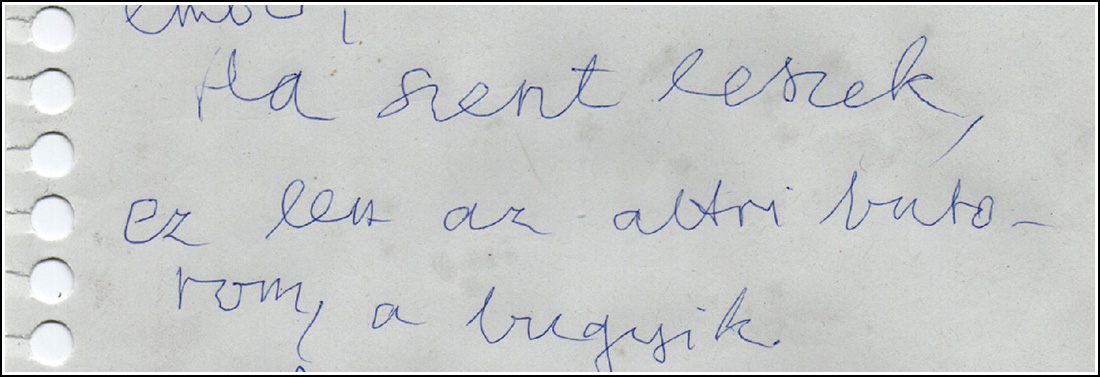 Ha szent leszek,
ez lesz az attri buto-
rom, a bugyik.